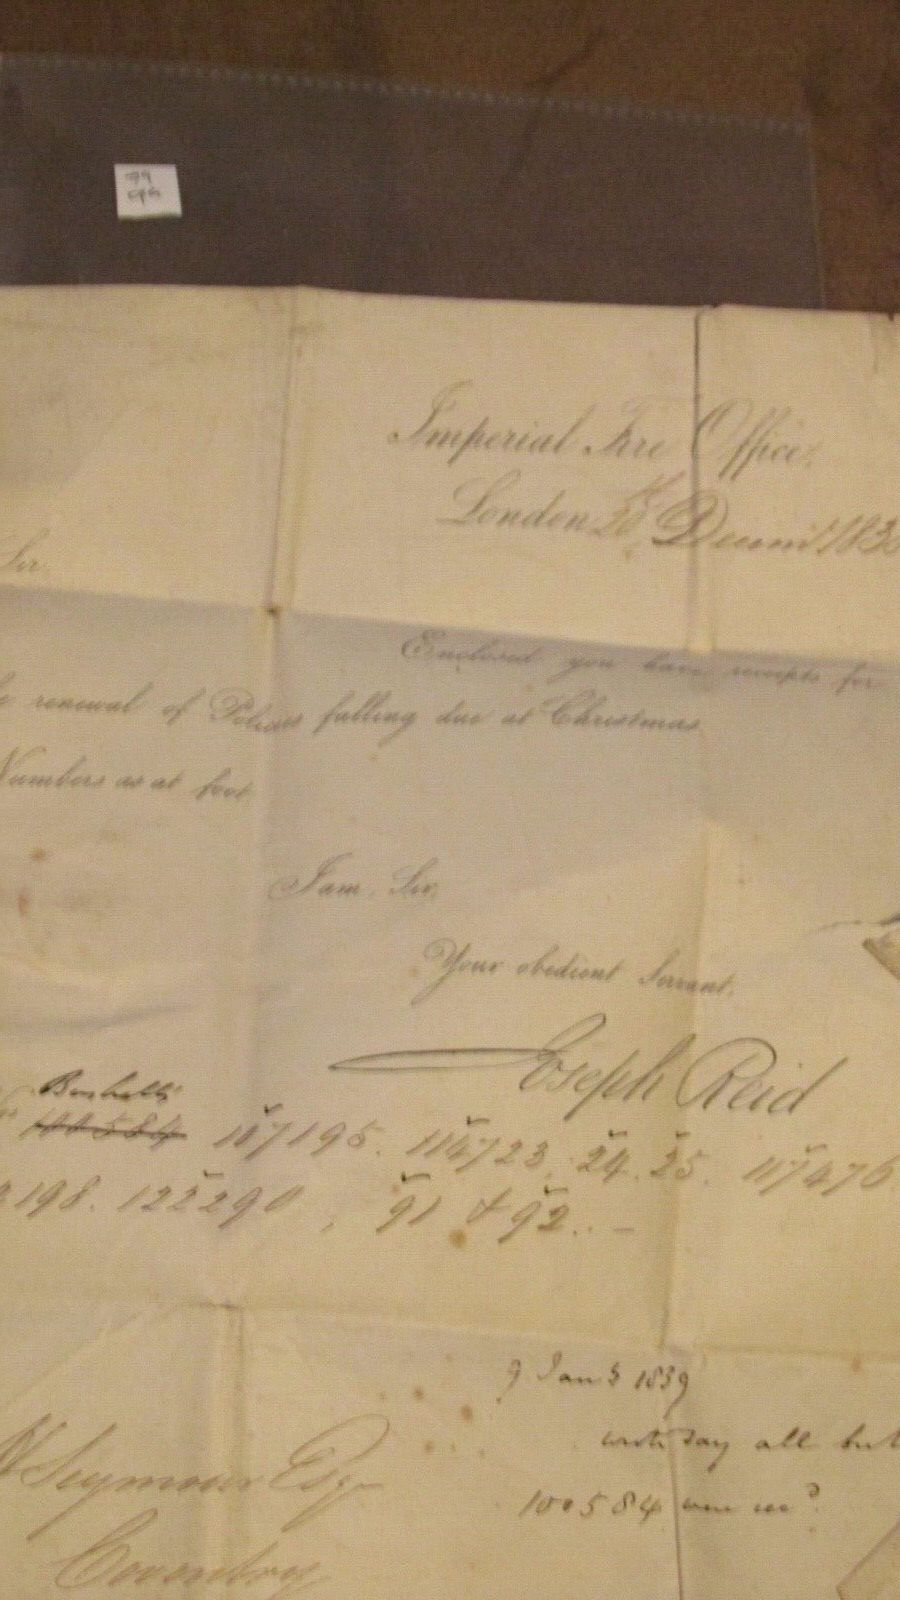 Imperial Fire Office,
London Decemr 183
Sir.
Enclosed you have receipts for
renewal of Policies falling due at Christmas
Numbers as at foot
I am, Sir,
Your obedient Servant,
Joseph Reid
100584 117195. 114723, 24. 25. 117476
198. 122290, 91 & 92..—
9 Jany 1839
wrote say all but
100584 were recd
Seymour Esqr
Coventry